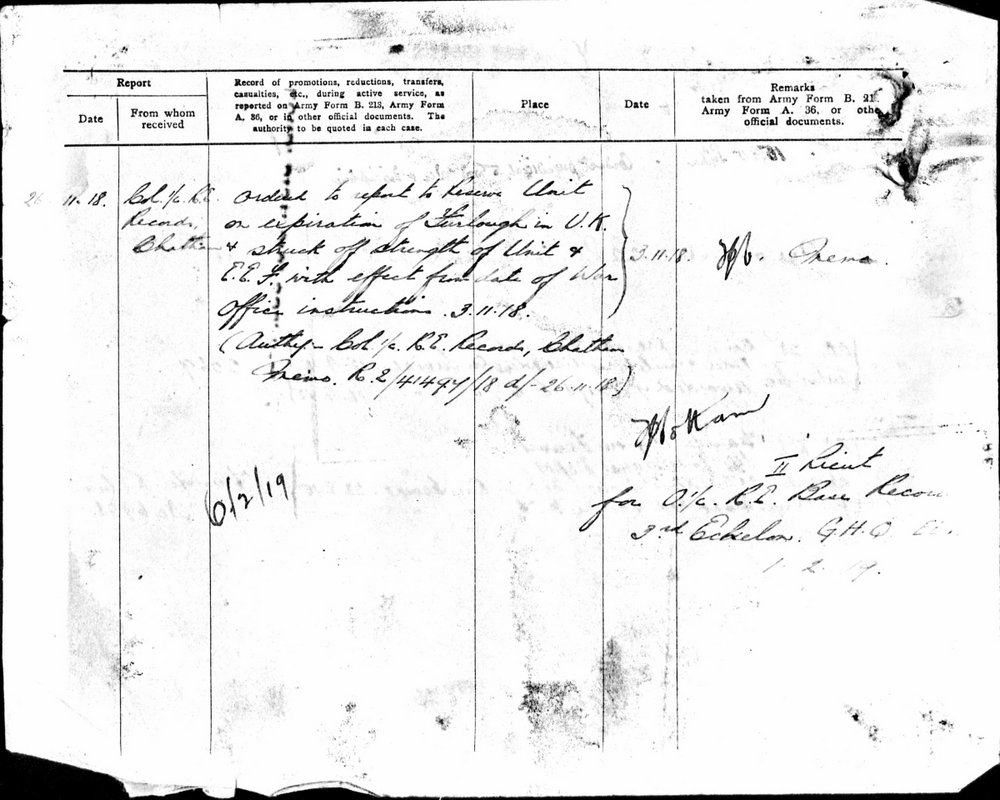 Report
Date
From whom
received
Record of promotions, reductions, transfers,
casualties, etc., during active service, as
reported on Army Form B. 213, Army Form
A. 36, or in other official documents. The
authority to be quoted in each case.
Place
Date
Remarks
taken from Army Form B. 21
Army Form A. 36, or othe
official documents.
26 11.18. Col. i/c. R.E. Ordered to report to Reserve Unit
Records, on expiration of Furlough in U.K.
Chatham & struck off strength of Unit & 3.11.18 Memo.
E.E.F. with effect from date of War
Office instructions. 3.11.18.
(Authy:- Col i/c. R.E. Records, Chatham
Memo. R.E/41497/18 d/- 26.11.18)
II Lieut
6/2/19
for O.i/c. R.E. Base Recor
3rd Echelon. G.H.Q.
1.2.19.